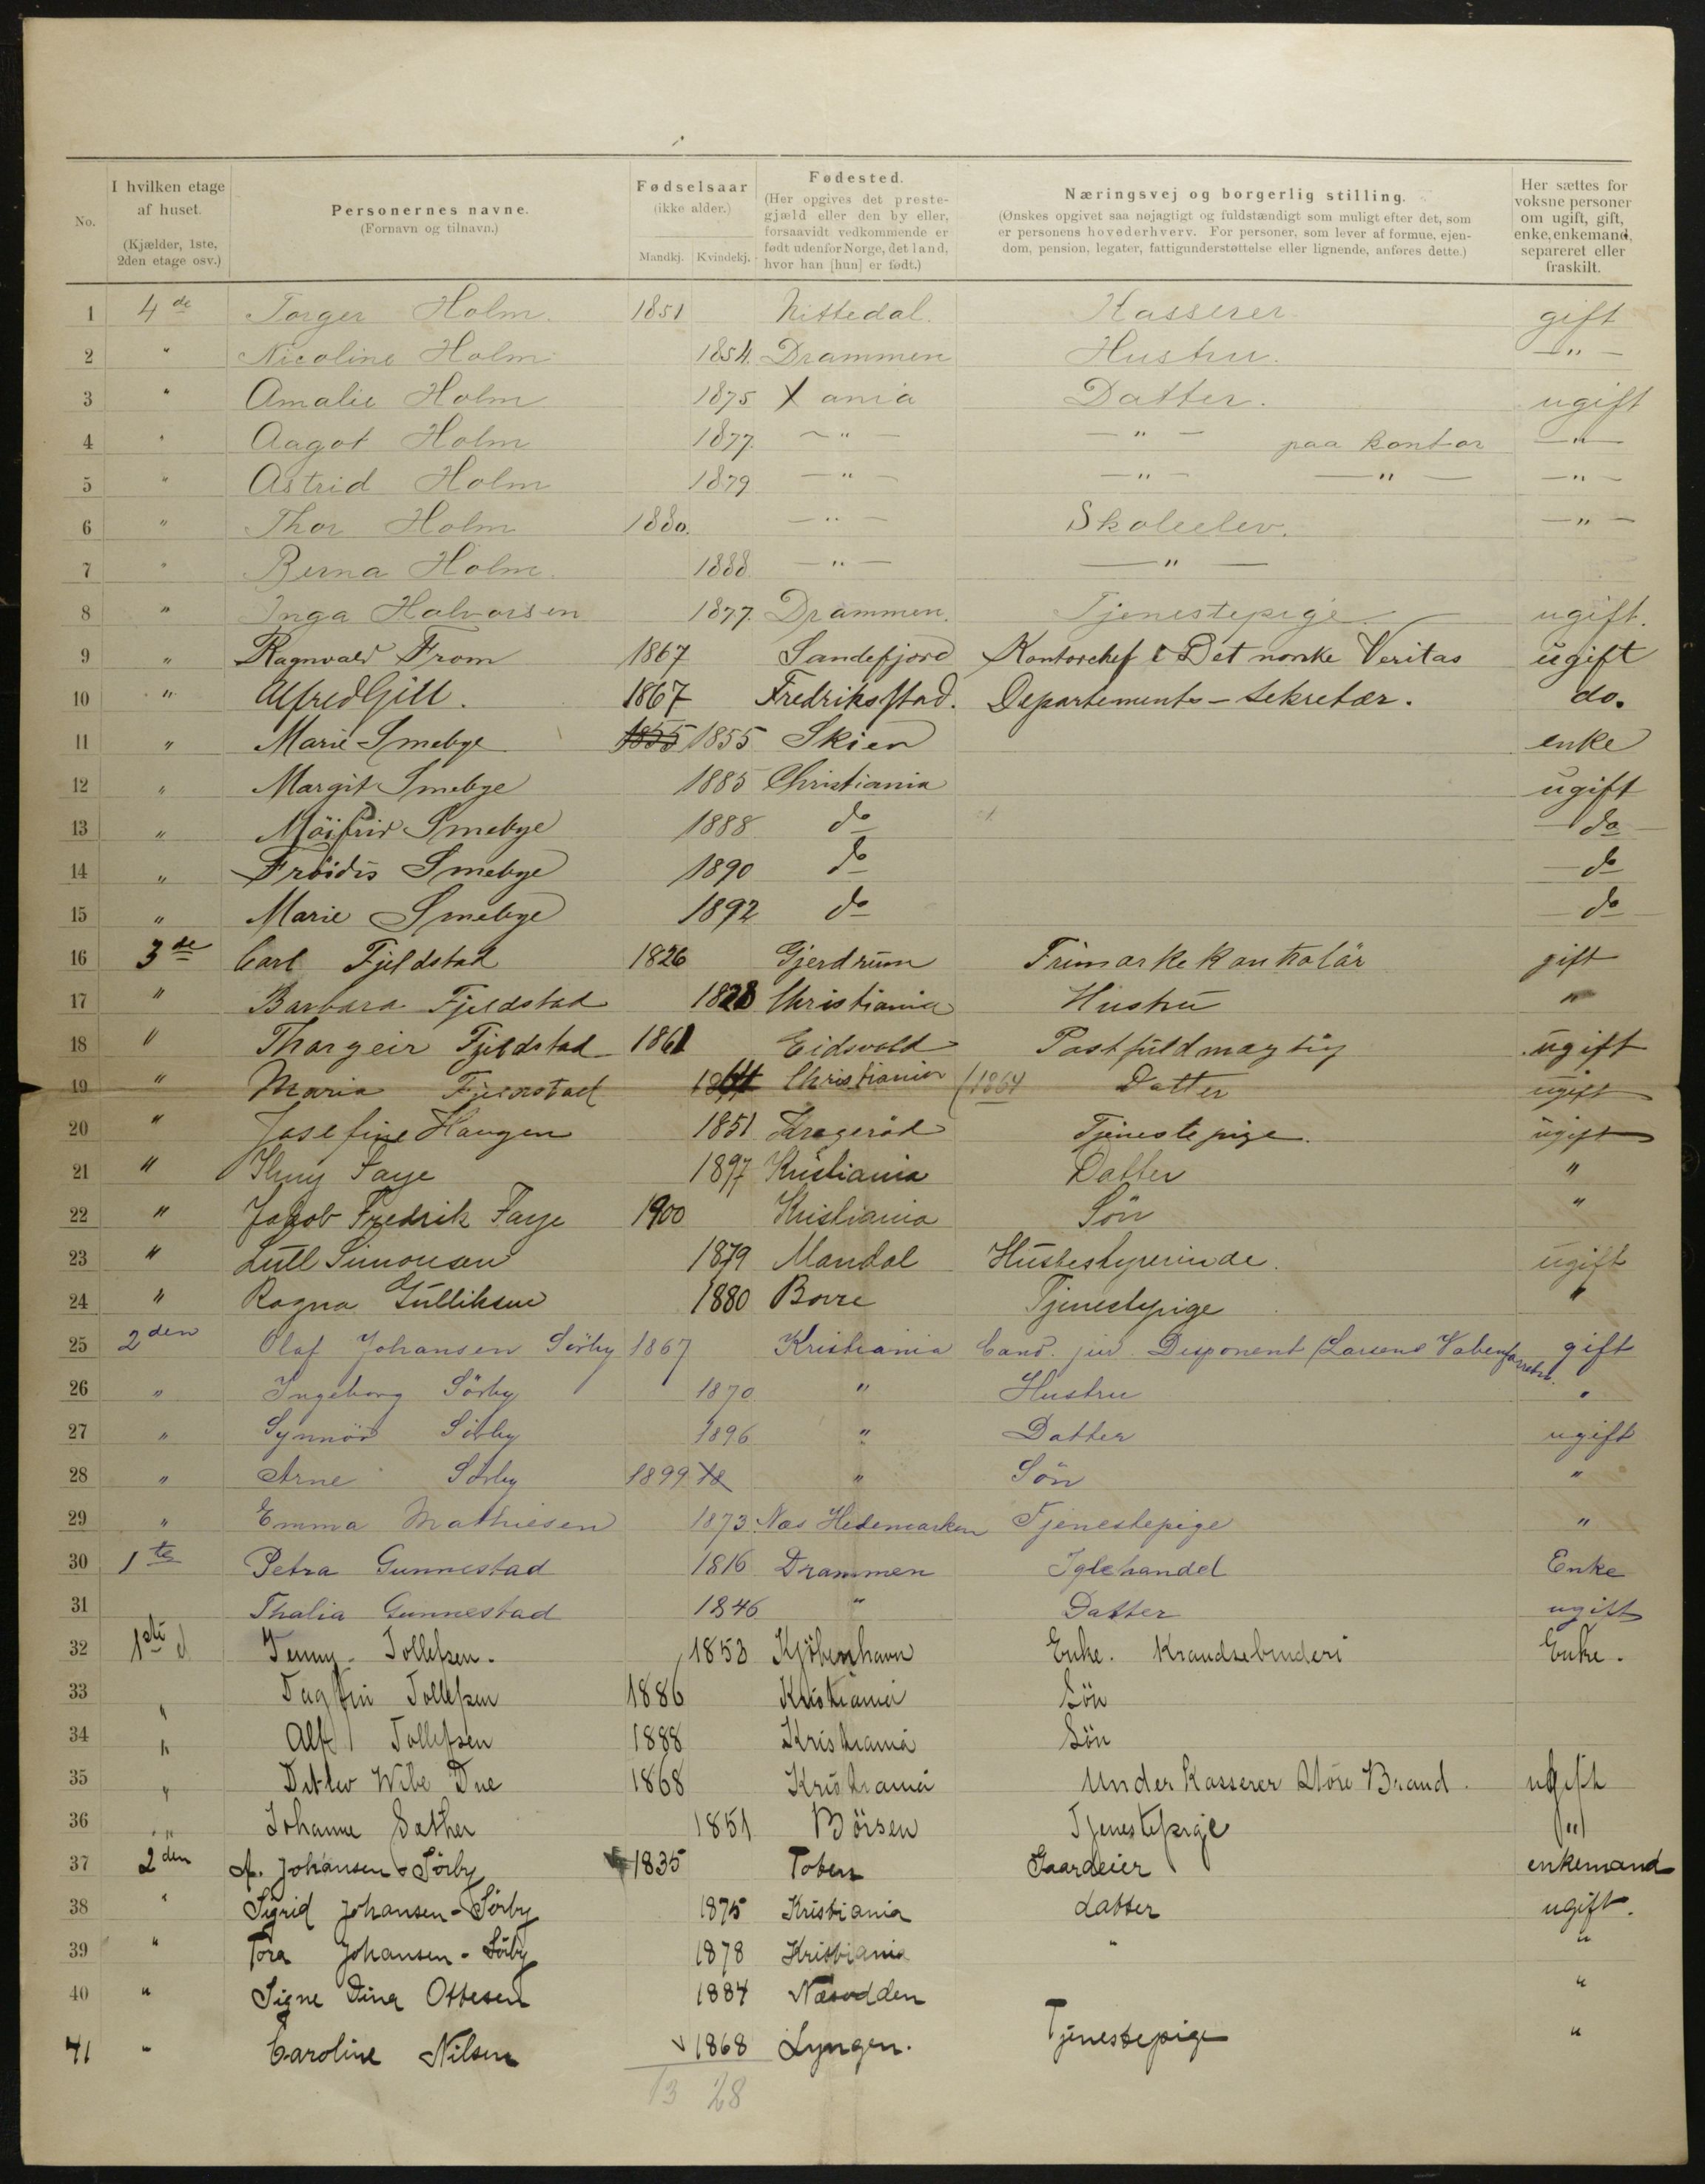 No.
I hvilken etage af huset. (Kjælder, 1ste, 2den etage osv.)
Personernes navne. (Fornavn og tilnavn.)
Fødselsaar (ikke alder.) Mandkj. Kvindekj.
Fødested. (Her opgives det prestegjæld eller den by eller, forsaavidt vedkommende er født udenfor Norge, det land, hvor han [hun] er født.)
Næringsvej og borgerlig stilling. (Ønskes opgivet saa nøjagtigt og fuldstændigt som muligt efter det, som er personens hovederhverv. For personer, som lever af formue, ejendom, pension, legater, fattigunderstøttelse eller lignende, anføres dette.)
Her sættes for voksne personer om ugift, gift, enke, enkemand, separeret eller fraskilt.
1 4de Torger Holm. 1851 Nittedal. Kasserer gift
2 " Nicoline Holm 1854. Drammen Hustru. — " —
3 " Amalie Holm 1875 X ania Datter. ugift
4 " Aagot Holm 1877. — " — — " — paa kontor — " —
5 " Astrid Holm 1879 — " — — " — — " — — " —
6 " Thor Holm 1880. — " — Skoleelev. — " —
7 " Berna Holm. 1888 — " — — " —
8 " Inga Halvorsen 1877. Drammen. Tjenestepige ugift.
9 " Ragnvald From 1867 Sandefjord Kontorchef i Det norske Veritas ugift
10 " Alfred Gill. 1867 Fredriksstad. Departements-sekretær. do.
11 " Marie Smebye 1855 1855 Skien enke
12 " Margit Smebye 1885 Christiania ugift
13 " Möifrid Smebye 1888 do do
14 " Fröidis Smebye 1890 do do
15 " Marie Smebye 1892 do do
16 3de Carl Fjeldstad 1826 Gjerdrum Frimærkekontrolär gift
17 " Barbara Fjeldstad 1828 Christiania Hustru "
18 " Thorgeir Fjeldstad 1861 Eidsvold Postfuldmægtig ugift
19 " Maria Fjeldstad 1864 Christiania (1864 Datter ugift
20 " Josefine Haugen 1851 Kragerød Tjenestepige. ugift
21 " Faye 1897 Kristiania Datter "
22 " Jakob Fredrik Faye 1900 Kristiania Sön "
23 " Lull Simonsen 1879 Mandal Husbestyrerinde. ugift
24 " Ragna Gulliksen 1880 Borre Tjenestepige "
25 2den Olaf Johansen Sörby 1867 Kristiania Cand. jur. Disponent (Larsens Vabenforretn. gift
26 " Ingeborg Sörby 1870 " Hustru "
27 " Synnöv Sörby 1896 " Datter ugift
28 " Arne Sörby 1899 18 " Sön "
29 " Emma Mathiesen 1873 Næs Hedemarken Tjenestepige "
30 1te Petra Gunnestad 1816 Drammen Iglehandel Enke
31 Thalia Gunnestad 1846 " Datter ugift
32 1ste Jenny Tollefsen. 1853 Kjöbenhavn Enke. Krandsebinderi Enke.
33 " Dagfin Tollefsen 1886 Kristiania Sön
34 " Alf Tollefsen 1888 Kristiania Sön
35 " Ditlev Wibe Due 1868 Kristiania Underkasserer Store Brand ugift
36 " Johanne Sæther 1851 Börsen Tjenestepige "
37 2den A. Johansen-Sörby 1835 Toten Gaardeier enkemand
38 " Sigrid Johansen-Sörby 1875 Kristiania datter ugift.
39 " Tora Johansen-Sörby 1878 Kristiania " "
40 " Signe Dina Ottesen 1884 Næsodden "
41 " Caroline Nilsen 1868 Lyngen. Tjenestepige "
13 28